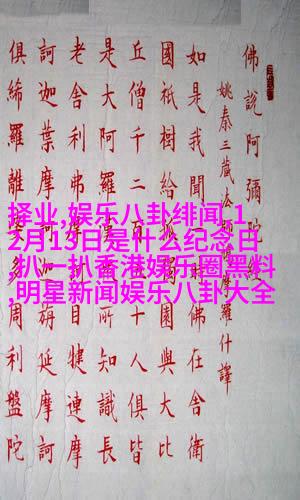 择业,娱乐八卦绯闻,1
2月13日是什么纪念日
,扒一扒香港娱乐圈黑料
,明星新闻娱乐八卦大全
佛說阿彌陀經
姚秦三藏法摩羅什譯
如是我聞佛在舍衛
國祇樹給孤園與大比
丘僧千二百十人俱皆
是大阿羅所知識長
老舍利弗摩目犍連摩
訶迦葉摩訶旃延摩訶
俱絺羅離周利盤陀